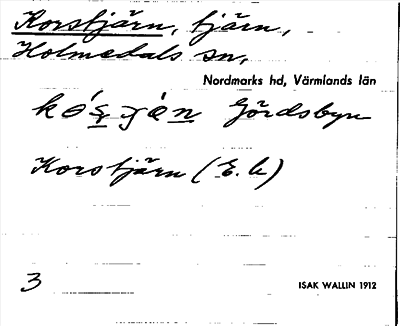 Korstjärn, tjärn,
Holmedals sn,
Nordmarks hd, Värmlands län
Gördsbyn
Korstjärn (E. k)
3
ISAK WALLIN 1912